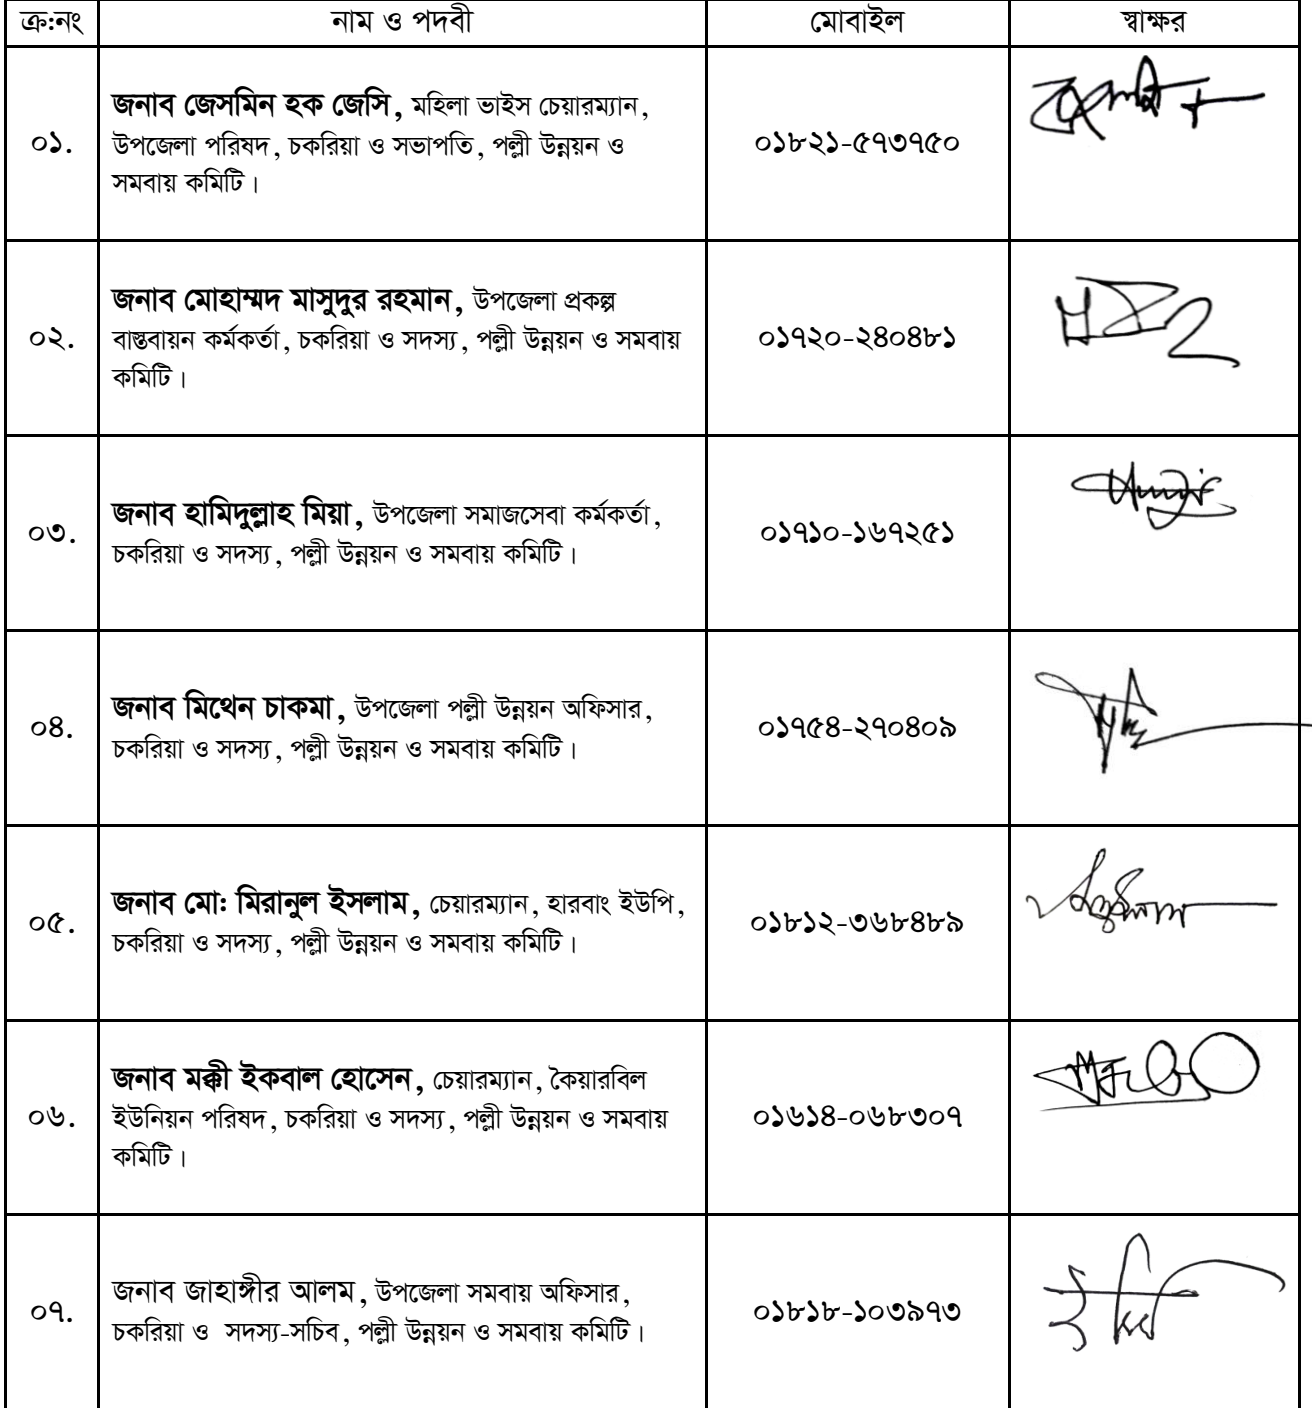 ক্র:নং নাম ও পদবী মোবাইল স্বাক্ষর
০১.
জনাব জেসমিন হক জেসি, মহিলা ভাইস চেয়ারম্যান,
উপজেলা পরিষদ, চকরিয়া ও সভাপতি, পল্লী উন্নয়ন ও
সমবায় কমিটি।
০১৮২১-৫৭৩৭৫০
০২.
জনাব মোহাম্মদ মাসুদুর রহমান, উপজেলা প্রকল্প
বাস্তবায়ন কর্মকর্তা, চকরিয়া ও সদস্য, পল্লী উন্নয়ন ও সমবায়
কমিটি।
০১৭২০-২৪০৪৮১
০৩.
জনাব হামিদুল্লাহ মিয়া, উপজেলা সমাজসেবা কর্মকর্তা,
চকরিয়া ও সদস্য, পল্লী উন্নয়ন ও সমবায় কমিটি।
০১৭১০-১৬৭২৫১
০৪.
জনাব মিথেন চাকমা, উপজেলা পল্লী উন্নয়ন অফিসার,
চকরিয়া ও সদস্য, পল্লী উন্নয়ন ও সমবায় কমিটি।
০১৭৫৪-২৭০৪০৯
০৫.
জনাব মো: মিরানুল ইসলাম, চেয়ারম্যান, হারবাং ইউপি,
চকরিয়া ও সদস্য, পল্লী উন্নয়ন ও সমবায় কমিটি।
০১৮১২-৩৬৮৪৮৯
০৬.
জনাব মক্কী ইকবাল হোসেন, চেয়ারম্যান, কৈয়ারবিল
ইউনিয়ন পরিষদ, চকরিয়া ও সদস্য, পল্লী উন্নয়ন ও সমবায়
কমিটি।
০১৬১৪-০৬৮৩০৭
০৭.
জনাব জাহাঙ্গীর আলম, উপজেলা সমবায় অফিসার,
চকরিয়া ও সদস্য-সচিব, পল্লী উন্নয়ন ও সমবায় কমিটি।
০১৮১৮-১০৩৯৭৩